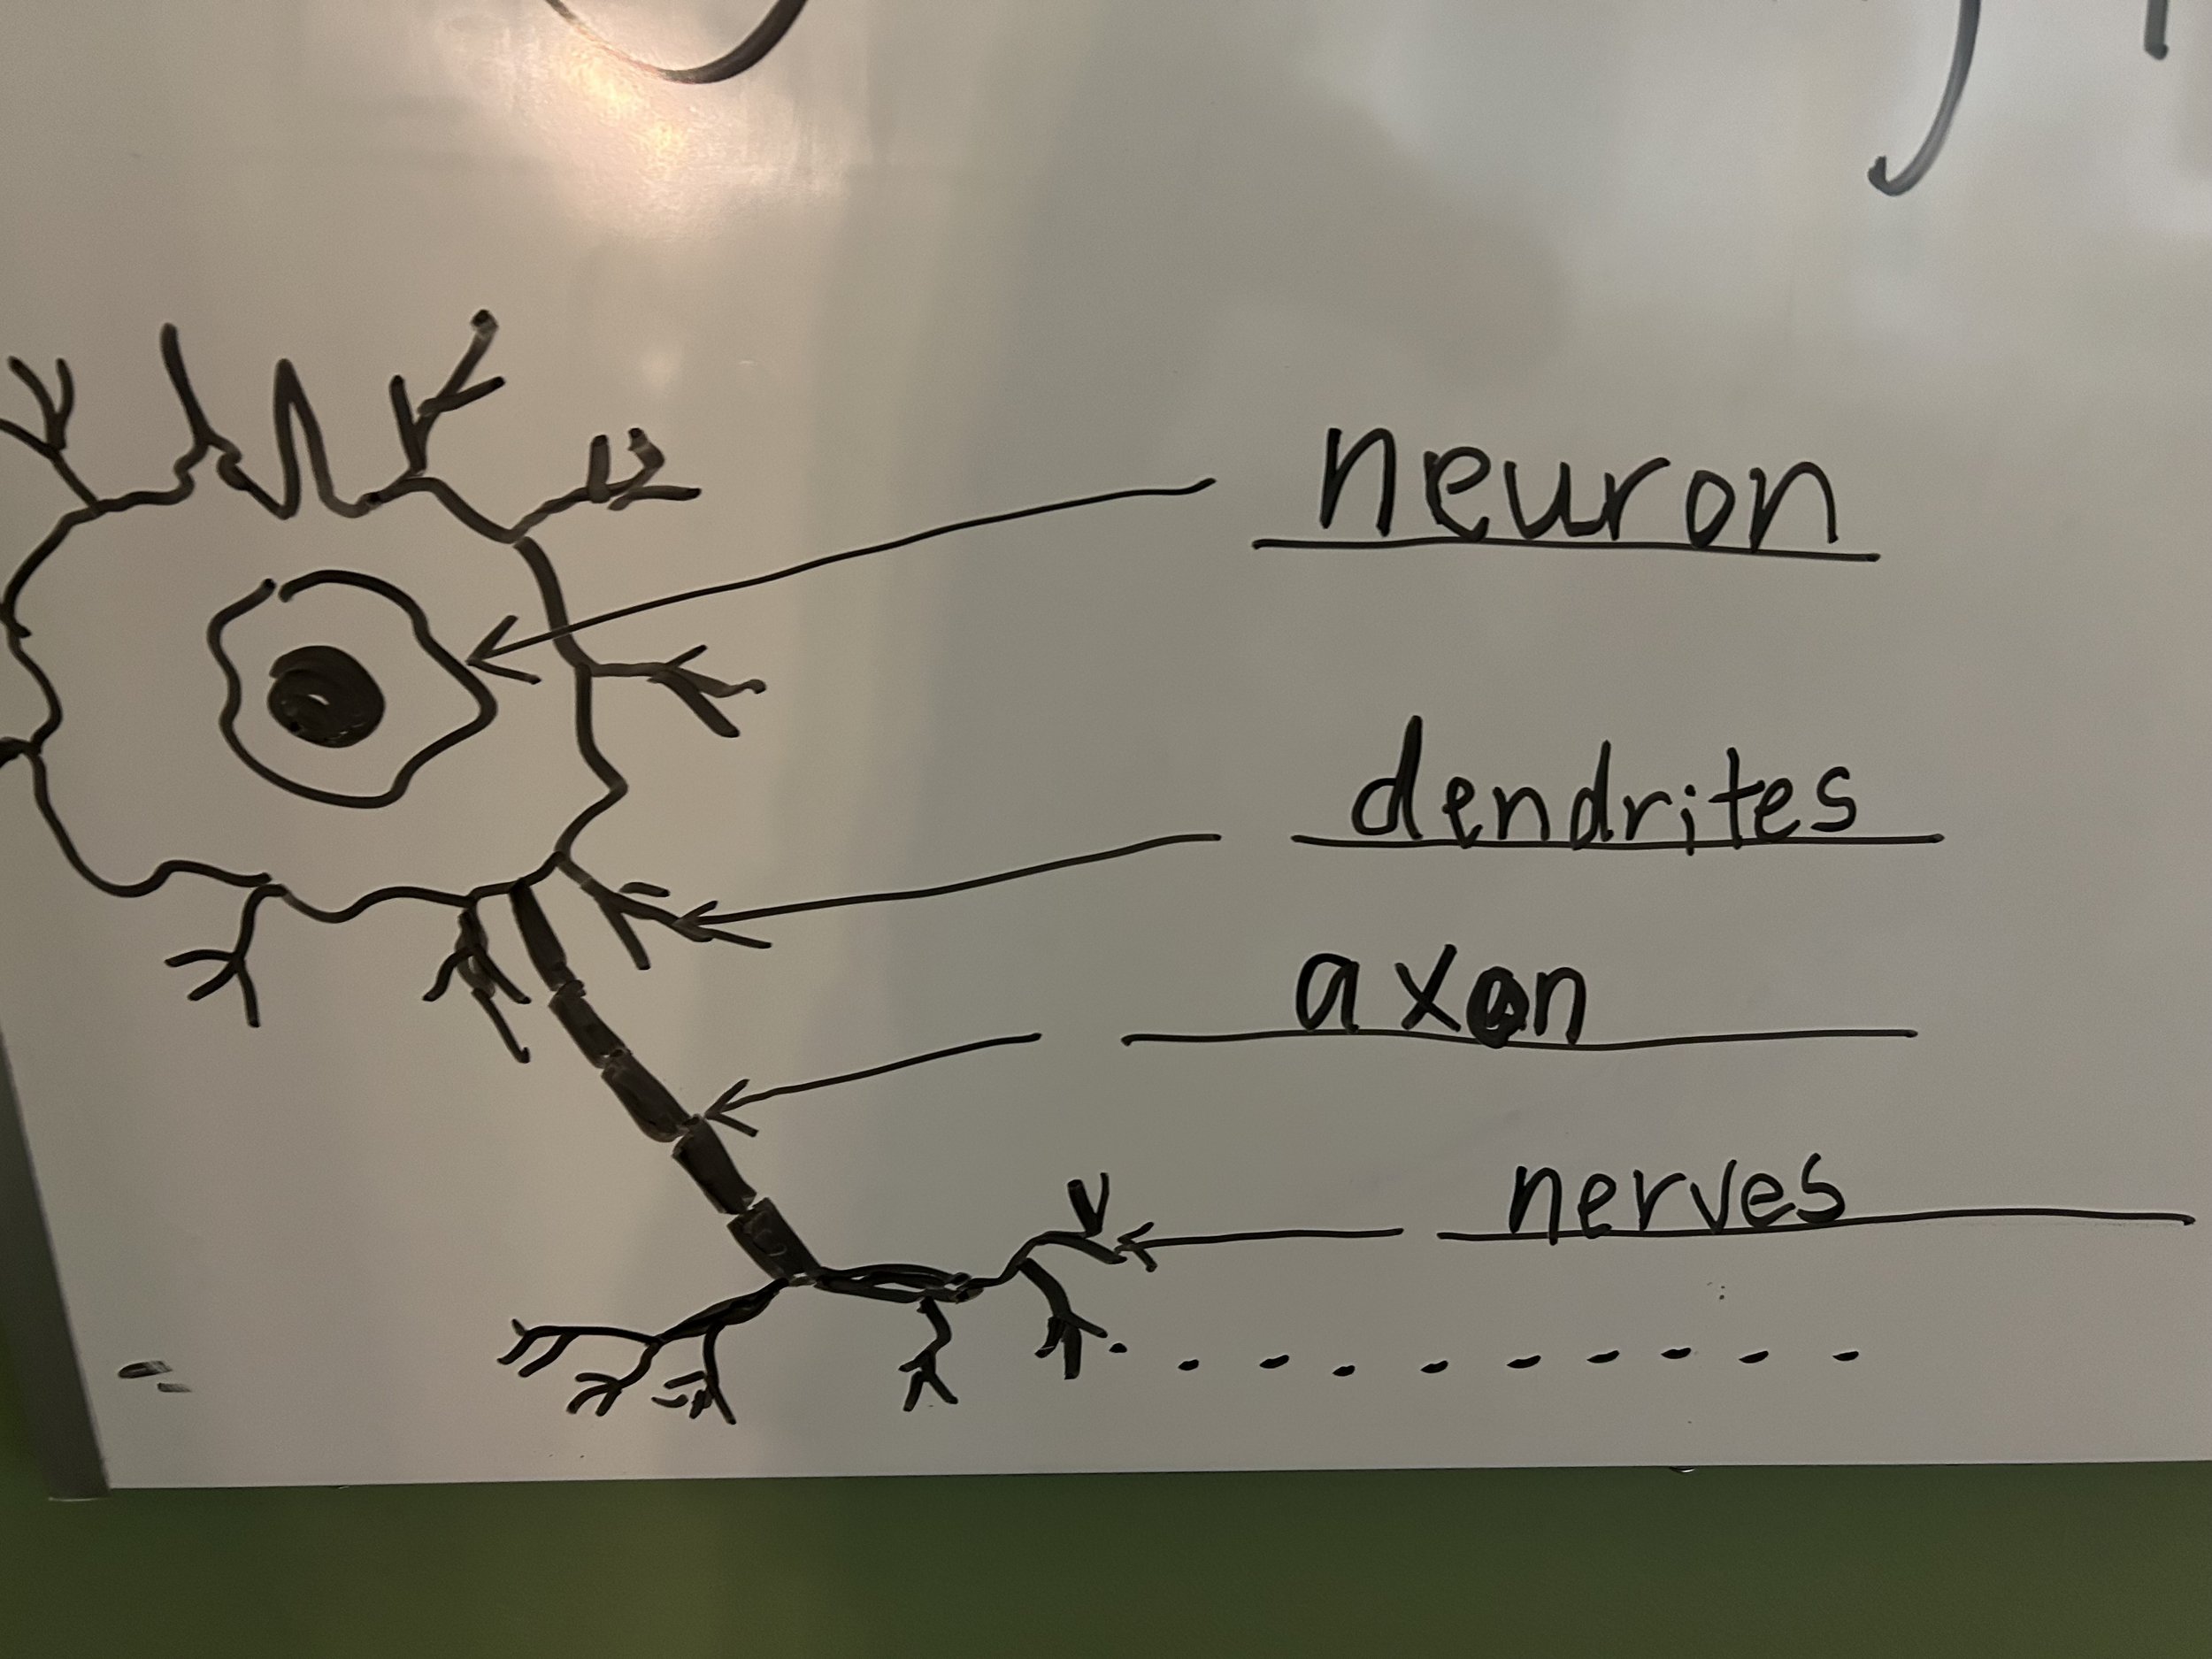 neuron
dendrites
axon
nerves